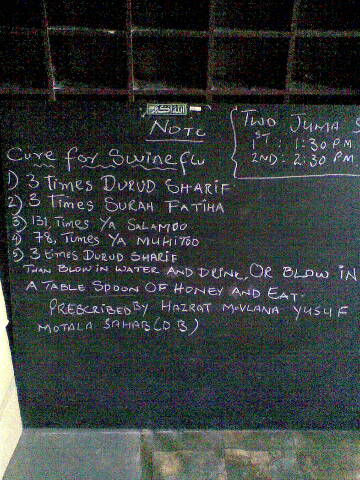 NOTE
TWO JUMA S
1ST: 1:30 PM
2ND: 2:30 PM
Cure for Swine flu
1) 3 Times DURUD SHARIF
2) 3 Times SURAH FATIHA
3) 131, Times YA SALAMOO
4) 78, Times YA MUHITOO
5) 3 times DURUD SHARIF
THAN BLOW IN WATER AND DRINK, OR BLOW IN
A TABLE SPOON OF HONEY AND EAT.
PRESCRIBED BY HAZRAT MOVLANA YUSUF
MOTALA SAHAB (D.B)